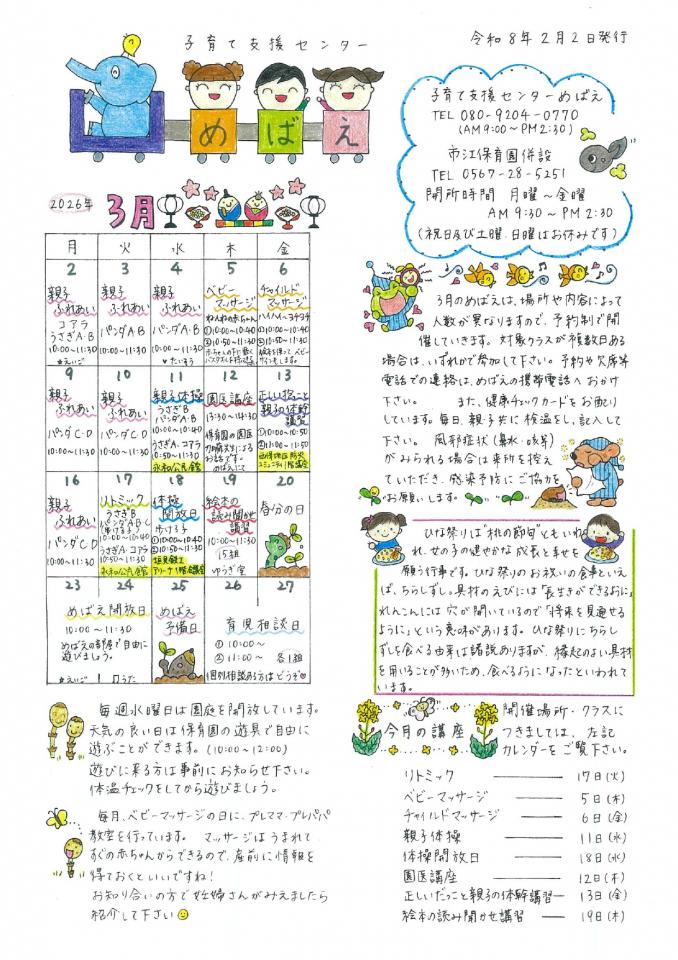 子育て支援センター
めばえ
令和8年2月2日発行
子育て支援センターめばえ
TEL 080-9204-0770
(AM9:00~PM2:30)
市江保育園併設
TEL 0567-28-5251
開所時間 月曜~金曜
AM 9:30 ~ PM 2:30
(祝日及び土曜.日曜はお休みです)
2026年
3月
月 火 水 木 金
2 3 4 5 6
親子ふれあい
コアラ
うさぎA・B
10:00~11:30
★えいご
親子ふれあい
パンダA・B
10:00~11:30
親子ふれあい
パンダA・B
10:00~11:30
★たいそう
ベビーマッサージ
ねんねの赤ちゃん
①10:00~10:40
②10:50~11:30
チャイルドマッサージ
ハイハイ~ヨチヨチ
①10:00~10:40
②10:50~11:30
9 10 11 12 13
親子ふれあい
パンダC・D
10:00~11:30
親子ふれあい
パンダC・D
10:00~11:30
親子体操
うさぎB
パンダA・B
10:00~10:40
うさぎA.コアラ
10:50~11:30
永和公民館
園医講座
13:30~14:30
保育園の園医
加藤先生による
お話です。
めばえにて
正しい抱っこと
親子の体幹
講習
①10:00~10:50
②11:00~11:50
西保地区防災
コミュニティ1階会議室
16 17 18 19 20
親子ふれあい
パンダC D
10:00~11:30
リトミック
うさぎB
パンダA・B・C
(歩ける子)
10:00~10:40
うさぎA・コアラ
10:50~11:30
永和公民館
体操
開放日
歩ける子
①10:00~10:40
②10:50~11:30
絵本の
読み聞かせ
講習
10:00~11:30
15組
ゆうぎ室
春分の日
23 24 25 26 27
めばえ開放日
10:00~11:30
めばえの部屋で自由に
遊びましょう。
★えいご
めばえ
予備日
育児相談日
① 10:00~
② 11:00~ 各1組
個別相談ある方はどうぞ♥
3月のめばえは、場所や内容によって
人数が異なりますので、予約制で開
催していきます。対象クラスが複数日ある
場合は、いずれかで参加して下さい。予約や欠席等
電話での連絡は、めばえの携帯電話へおかけ
下さい。 また、健康チェックカードをお配り
しています。毎日、親子共に検温をし、記入して
下さい。 風邪症状(鼻水・咳等)
がみられる場合は来所を控え
ていただき、感染予防にご協力を
お願いします。
ひな祭りは“桃の節句”ともいわ
れ、女の子の健やかな成長と幸せを
願う行事です。ひな祭りのお祝いの食事といえ
ば、ちらしずし。具材のえびには「長生きができるように」
れんこんには穴が開いているので「将来を見通せる
ように」という意味があります。ひな祭りにちらし
ずしを食べる由来は諸説ありますが、縁起のよい具材
を用いることが多いため、食べるようになったといわれて
います。
毎週水曜日は園庭を開放しています。
天気の良い日は保育園の遊具で自由に
遊ぶことができます。(10:00~12:00)
遊びに来る方は事前にお知らせ下さい。
体温チェックをしてから遊びましょう。
毎月、ベビーマッサージの日に、プレママ・プレパパ
教室を行っています。 マッサージはうまれて
すぐの赤ちゃんからできるので、産前に情報を
得ておくといいですね!
お知り合いの方で妊婦さんがみえましたら
紹介して下さい
今月の講座
開催場所・クラスに
つきましては、左記
カレンダーをご覧下さい。
リトミック ― 17日(火)
ベビーマッサージ ― 5日(木)
チャイルドマッサージ ― 6日(金)
親子体操 ― 11日(水)
体操開放日 ― 18日(水)
園医講座 ― 12日(木)
正しいだっこと親子の体幹講習 ― 13日(金)
絵本の読み聞かせ講習 ― 19日(木)